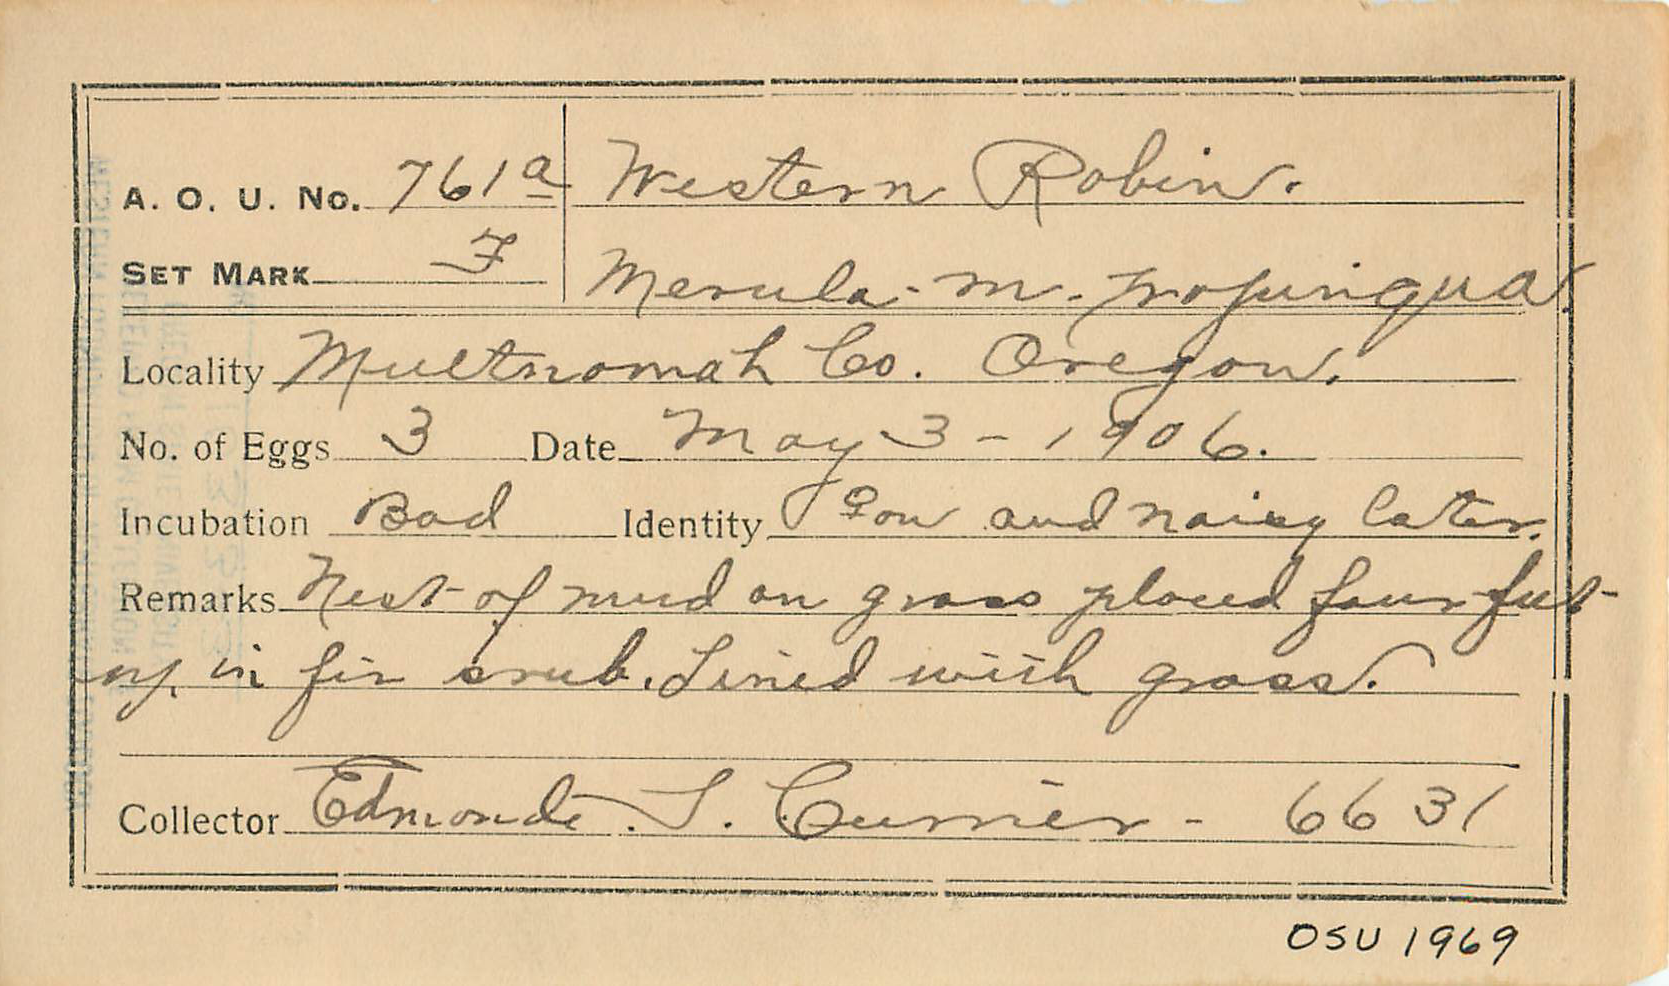 A. O. U. No. 761a Western Robin.
Set Mark F Merula. m. propinqua.
Locality Multnomah Co. Oregon.
No. of Eggs 3 Date May 3 - 1906.
Incubation Bad Identity ♀ on and noisy later.
Remarks Nest of mud on grass placed four feet
up in fir srub. Lined with grass.
Collector Edmonde. S. Currier - 6631
OSU 1969